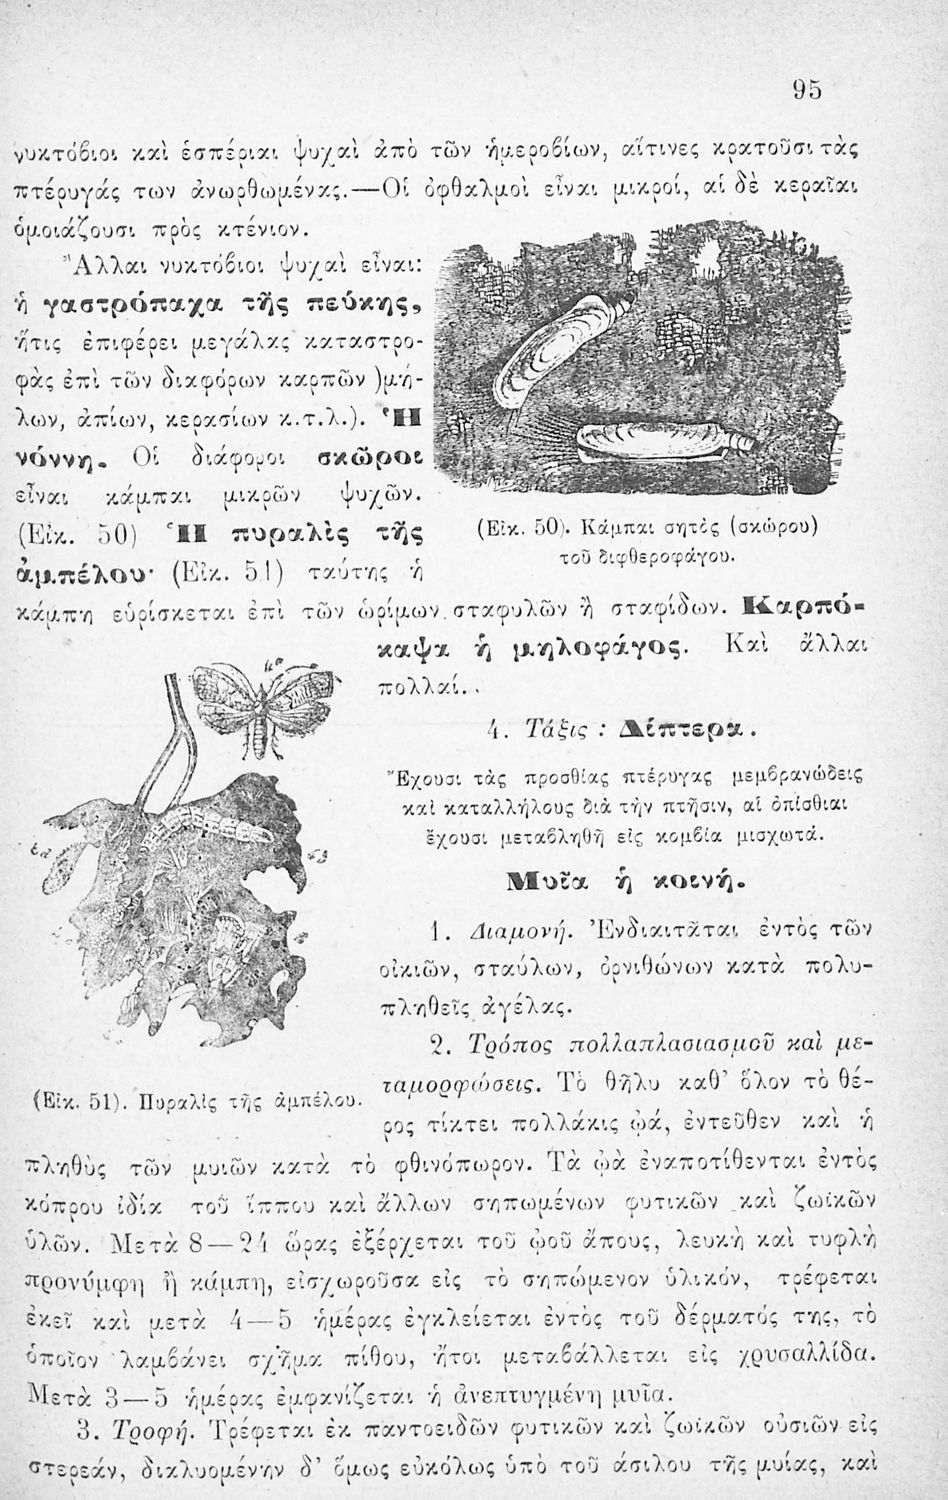 95
νυκτόβιοι καὶ ἑσπέριαι ψυχαὶ ἀπὸ τῶν ἡμεροβίων, αἵτινες κρατοῦσι τὰς
πτέρυγάς των ἀνωρθωμένας.—Οἱ ὀφθαλμοὶ εἶναι μικροί, αἱ δὲ κεραῖαι
ὁμοιάζουσι πρὸς κτένιον.
Ἄλλαι νυκτόβιοι ψυχαὶ εἶναι:
ἡ γαστρόπαχα τῆς πεύκης,
ἥτις ἐπιφέρει μεγάλας καταστρο-
φὰς ἐπὶ τῶν διαφόρων καρπῶν )μή-
λων, ἀπίων, κερασίων κ.τ.λ.). Ἡ
νόννη. Οἱ διάφοροι σκῶροι
εἶναι κάμπαι μικρῶν ψυχῶν.
(Εἰκ. 50) Ἡ πυραλὶς τῆς
ἀμπέλου· (Εἰκ. 51) ταύτης ἡ
κάμπη εὑρίσκεται ἐπὶ τῶν ὡρίμων σταφυλῶν ἢ σταφίδων. Καρπό-
καψα ἡ μηλοφάγος. Καὶ ἄλλαι
πολλαί..
(Εἰκ. 50). Κάμπαι σητὸς (σκώρου)
τοῦ διφθεροφάγου.
4. Τάξις : Δίπτερα.
Ἔχουσι τὰς προσθίας πτέρυγας μεμβρανώδεις
καὶ καταλλήλους διὰ τὴν πτῆσιν, αἱ ὀπίσθιαι
ἔχουσι μεταβληθῆ εἰς κομβία μισχωτά.
Μυῖα ἡ κοινή.
1. Διαμονή. Ἐνδιαιτᾶται ἐντὸς τῶν
οἰκιῶν, σταύλων, ὀρνιθώνων κατὰ πολυ-
πληθεῖς ἀγέλας.
2. Τρόπος πολλαπλασιασμοῦ καὶ με-
ταμορφώσεις. Τὸ θῆλυ καθ’ ὅλον τὸ θέ-
ρος τίκτει πολλάκις ᾠά, ἐντεῦθεν καὶ ἡ
(Εἰκ. 51). Πυραλὶς τῆς ἀμπέλου.
πληθὺς τῶν μυιῶν κατὰ τὸ φθινόπωρον. Τὰ ᾠὰ ἐναποτίθενται ἐντὸς
κόπρου ἰδίᾳ τοῦ ἵππου καὶ ἄλλων σηπωμένων φυτικῶν καὶ ζωϊκῶν
ὑλῶν. Μετὰ 8—24 ὥρας ἐξέρχεται τοῦ ᾠοῦ ἄπους, λευκὴ καὶ τυφλὴ
προνύμφη ἢ κάμπη, εἰσχωροῦσα εἰς τὸ σηπώμενον ὑλικόν, τρέφεται
ἐκεῖ καὶ μετὰ 4—5 ἡμέρας ἐγκλείεται ἐντὸς τοῦ δέρματός της, τὸ
ὁποῖον λαμβάνει σχῆμα πίθου, ἤτοι μεταβάλλεται εἰς χρυσαλλίδα.
Μετὰ 3—5 ἡμέρας ἐμφανίζεται ἡ ἀνεπτυγμένη μυῖα.
3. Τροφή. Τρέφεται ἐκ παντοειδῶν φυτικῶν καὶ ζωϊκῶν οὐσιῶν εἰς
στερεάν, διαλυομένην δ’ ὅμως εὐκόλως ὑπὸ τοῦ σιάλου τῆς μυίας, καὶ